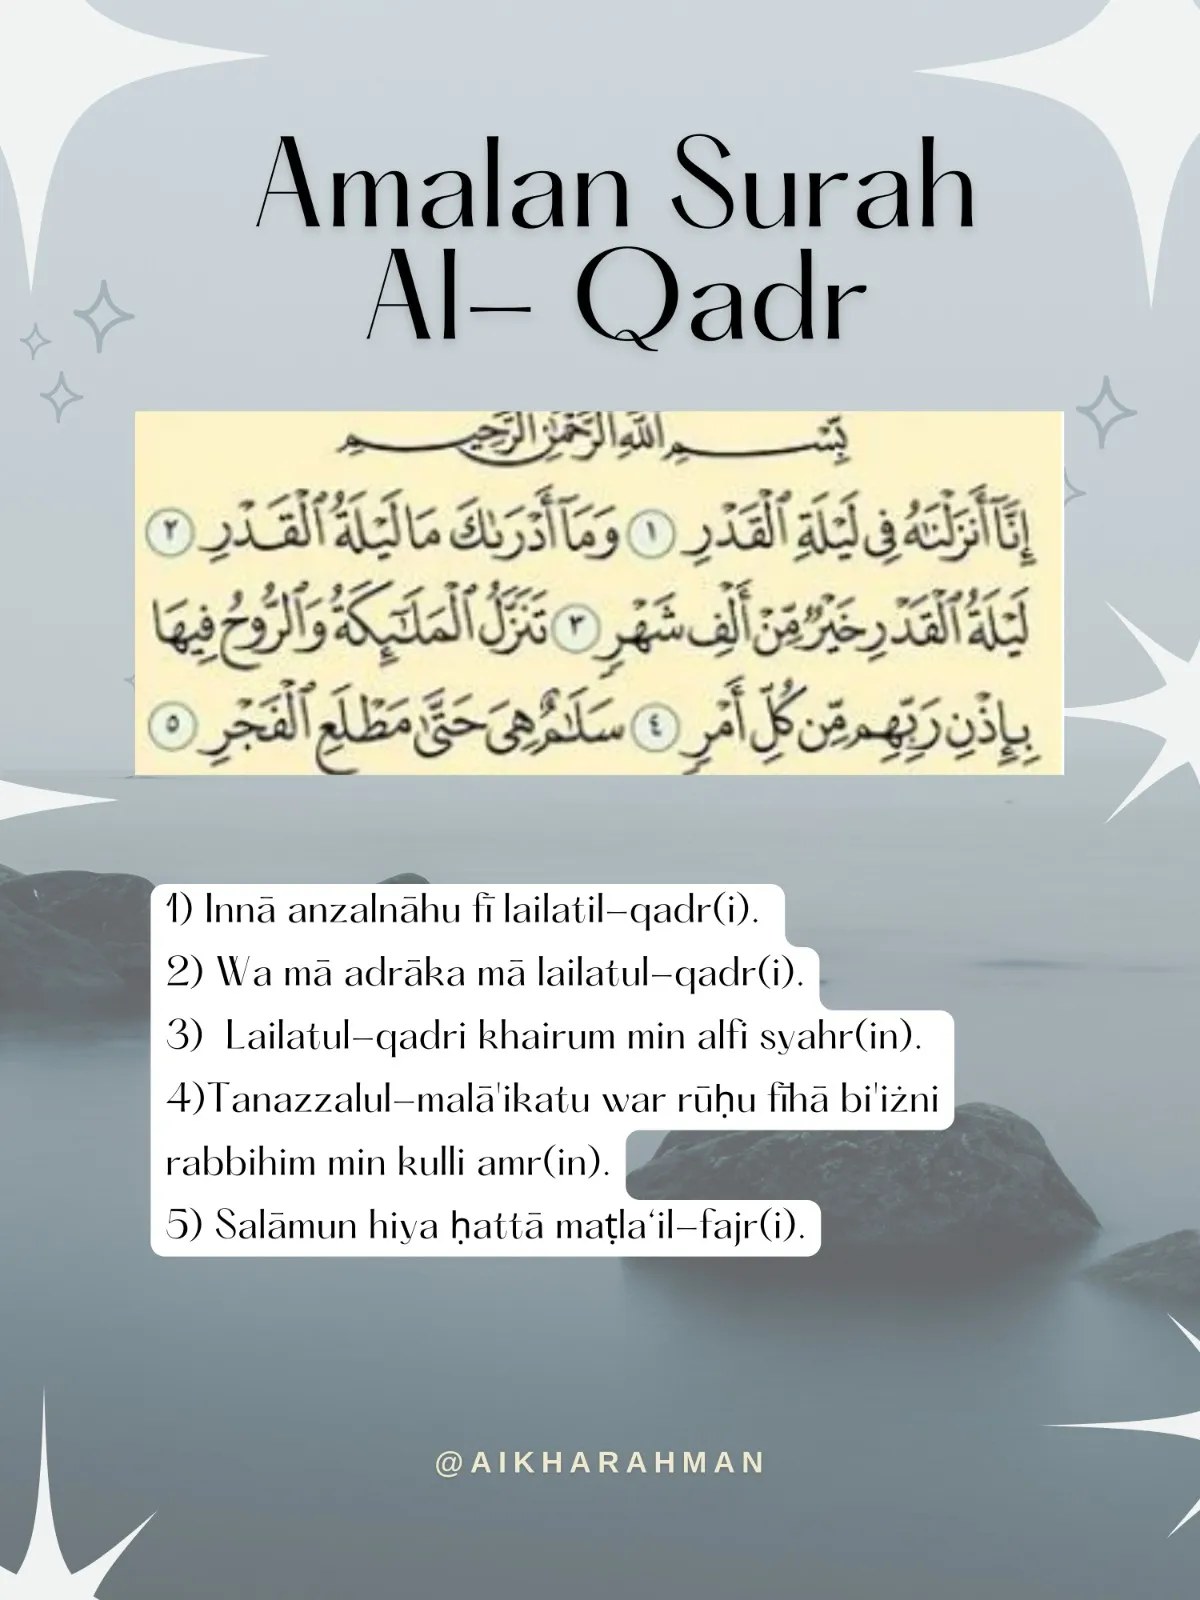 Amalan Surah
Al- Qadr
بِسْمِ اللَّهِ الرَّحْمَٰنِ الرَّحِيمِ
إِنَّآ أَنزَلْنَٰهُ فِى لَيْلَةِ ٱلْقَدْرِ ١ وَمَآ أَدْرَىٰكَ مَا لَيْلَةُ ٱلْقَدْرِ ٢
لَيْلَةُ ٱلْقَدْرِ خَيْرٌ مِّنْ أَلْفِ شَهْرٍ ٣ تَنَزَّلُ ٱلْمَلَٰٓئِكَةُ وَٱلرُّوحُ فِيهَا
بِإِذْنِ رَبِّهِم مِّن كُلِّ أَمْرٍ ٤ سَلَٰمٌ هِىَ حَتَّىٰ مَطْلَعِ ٱلْفَجْرِ ٥
1) Innā anzalnāhu fī lailatil-qadr(i).
2) Wa mā adrāka mā lailatul-qadr(i).
3)  Lailatul-qadri khairum min alfi syahr(in).
4)Tanazzalul-malā'ikatu war rūḥu fīhā bi'iżni
rabbihim min kulli amr(in).
5) Salāmun hiya ḥattā maṭla‘il-fajr(i).
@AIKHARAHMAN